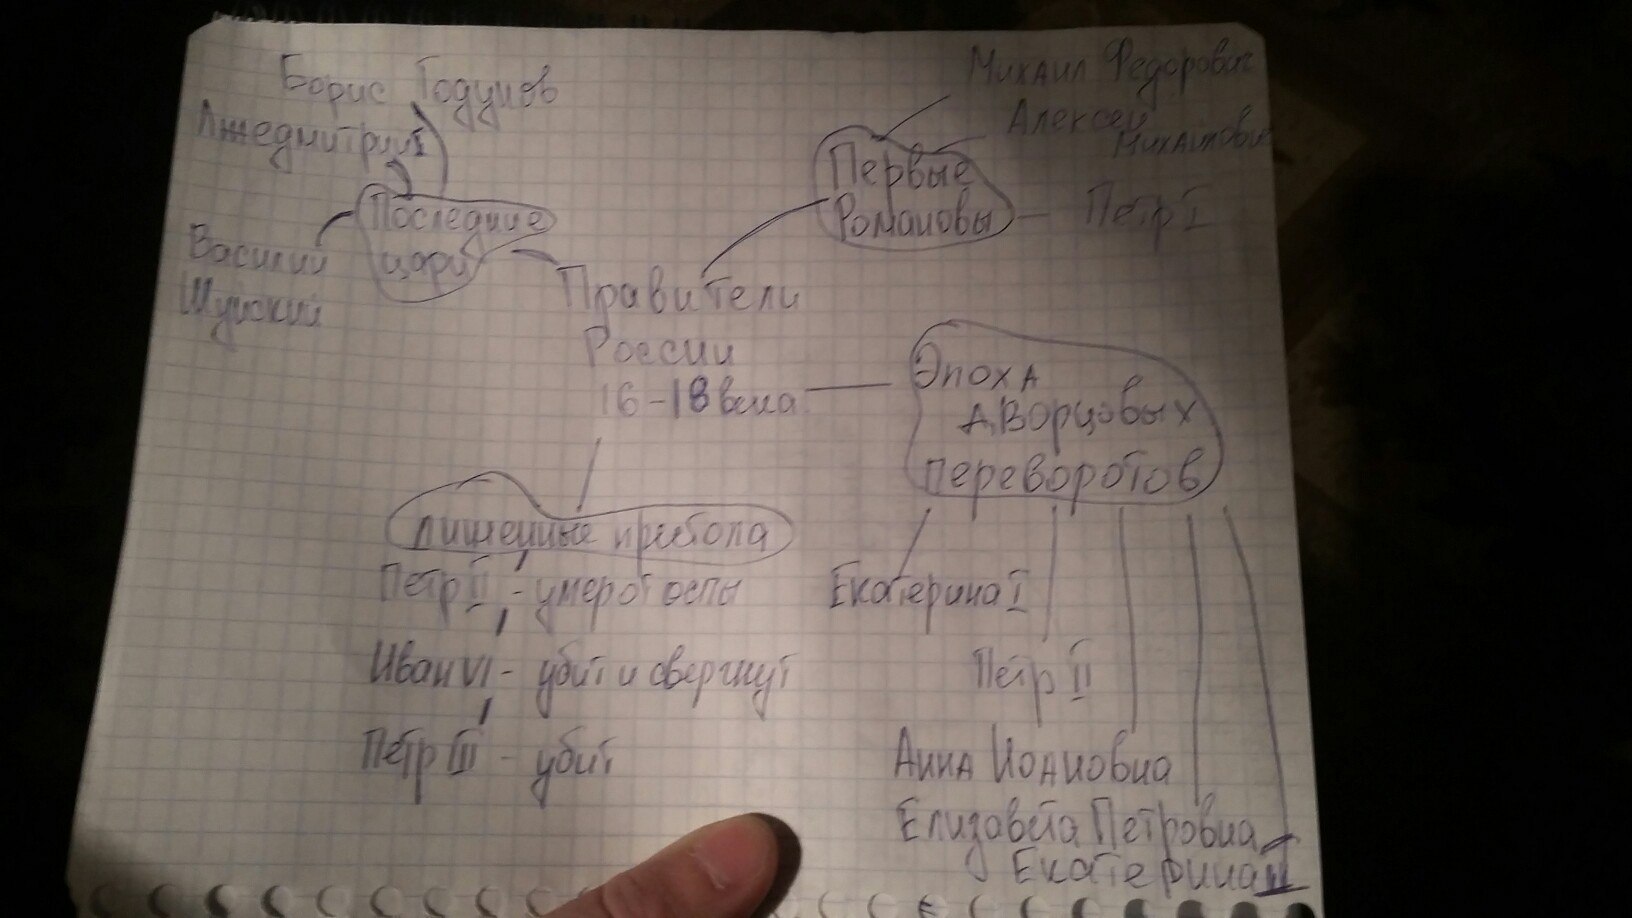 Борис Годунов
Лжедмитрий I
Последние
цари
Василий
Шуйский
Михаил Федорович
Алексей
Михайлович
Первые
Романовы
Петр I
Правители
России
16-18 века
Эпоха
дворцовых
переворотов
лишенные престола
Петр II - умер от оспы
Иван VI - убит и свергнут
Петр III - убит
Екатерина I
Петр II
Анна Иоановна
Елизавета Петровна
Екатерина II